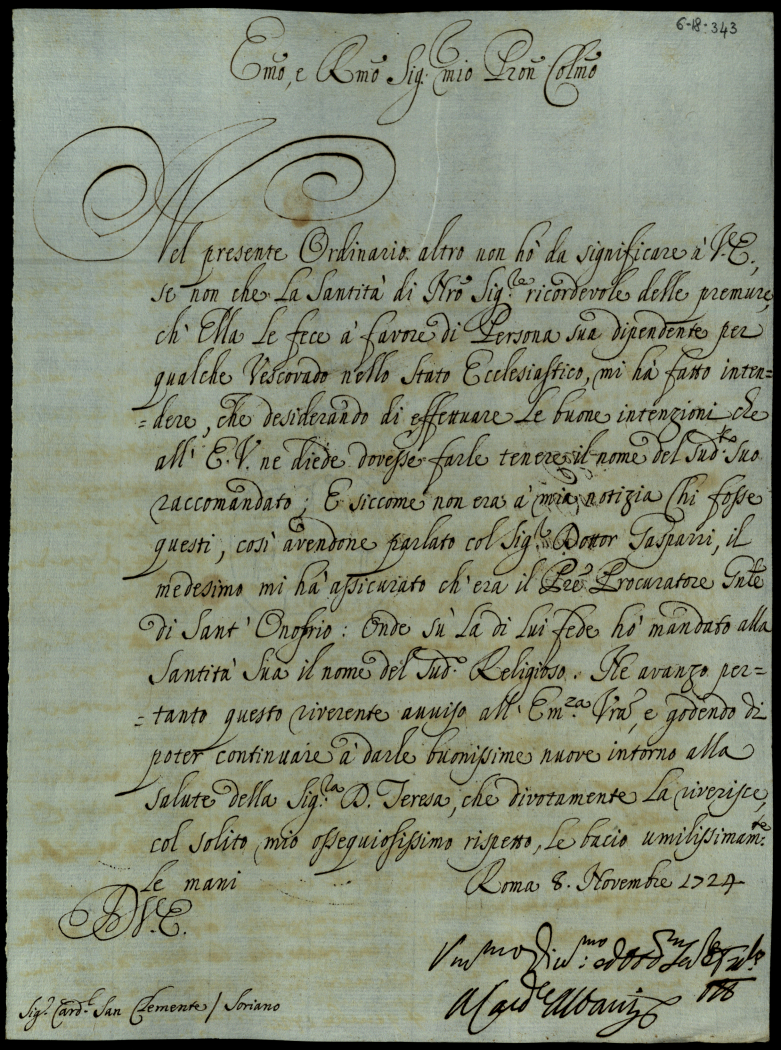 6-18-343
Emo, e Rmo Sig. mio Pron Colmo
Nel presente Ordinario altro non hò da significare à V.E.,
se non che La Santità di Nro Sig.re ricordevole delle premure,
ch' Ella Le fece à favore di Persona sua dipendente per
qualche Vescovado nello Stato Ecclesiastico, mi hà fatto inten=
=dere, che desiderando di effettuare Le buone intenzioni che
all' E.V. ne diede dovesse farle tenere il nome del Sud.to suo
raccomandato; E siccome non era à mia notizia Chi fosse
questi, così avendone parlato col Sig.r Dottor Gasparri, il
medesimo mi hà assicurato ch'era il Pre Procuratore Gnle
di Sant' Onofrio: Onde sù La di Lui fede hò mandato alla
Santità Sua il nome del Sud.o Religioso. Ne avanzo per=
=tanto questo riverente avviso all' Em.za Vra, e godendo di
poter continuare à darle buonissime nuove intorno alla
salute della Sig.ra D. Teresa, che divotamente La riverisce,
col solito mio ossequiosissimo rispetto, Le bacio umilissimam.te
Le mani
Roma 8. Novembre 1724
D V.E.
A Card.e Albani
Sig.r Card.e San Clemente / Soriano